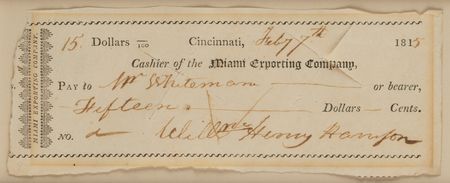 15. Dollars /100 Cincinnati, Feby 7th 1815
Cashier of the Miami Exporting Company,
PAY to Mr Whiteman or bearer,
Fifteen Dollars — Cents.
NO. Willm Henry Harrison
MIAMI EXPORTING COMPANY.